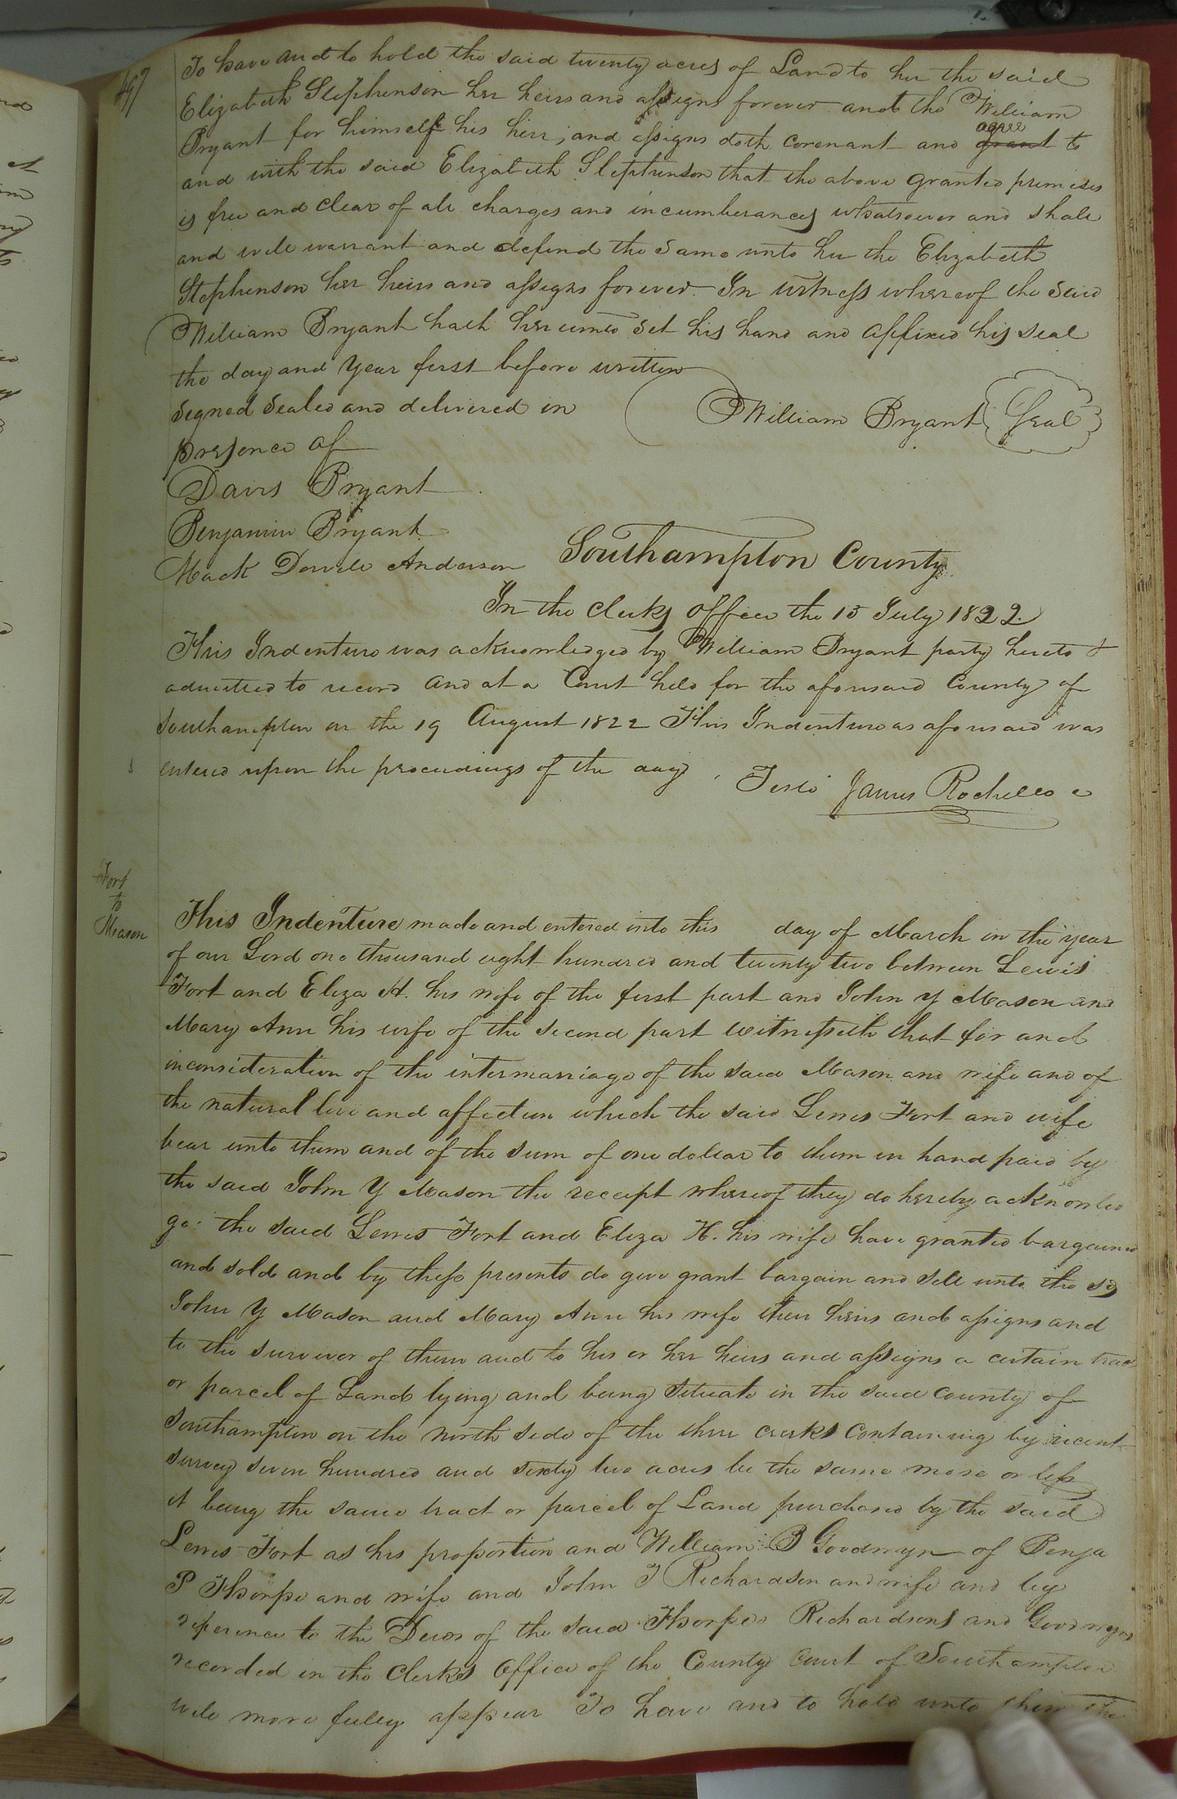 497
To have and to hold the said twenty acres of Land to her the said
Elizabeth Stephenson her heirs and assigns forever and the William
Bryant for himself his heirs, and assigns doth covenant and grant agree to
and with the said Elizabeth Stephenson that the above granted premises
is free and clear of all charges and incumberances whatsoever and shall
and will warrant and defend the same unto her the Elizabeth
Stephenson her heirs and assigns forever In witness whereof the said
William Bryant hath hereunto set his hand and affixed his seal
the day and year first before written
Signed Sealed and delivered in
William Bryant Seal
presence of
Davis Bryant
Benjamin Bryant
Mack Dowell Anderson
Southampton County
In the clerks office the 15 July 1822
This Indenture was acknowledged by William Bryant party hereto &
admitted to record and at a Court held for the aforesaid County of
Southampton on the 19 August 1822 This Indenture as aforesaid was
entered upon the proceedings of the day
Teste James Rochelle c
Fort
to
Mason
This Indenture made and entered into this day of March in the year
of our Lord one thousand eight hundred and twenty two between Lewis
Fort and Eliza H. his wife of the first part and John Y Mason and
Mary Ann his wife of the second part witnesseth that for and
inconsideration of the intermarriage of the said Mason and wife and of
the natural love and affection which the said Lewis Fort and wife
bear unto them and of the sum of one dollar to them in hand paid by
the said John Y Mason the receipt whereof they do hereby acknowled
ge the said Lewis Fort and Eliza H. his wife have granted bargained
and sold and by these presents do give grant bargain and sell unto the sd
John Y Mason and Mary Ann his wife their heirs and assigns and
to the surviver of them and to his or her heirs and assigns a certain tract
or parcel of Land lying and being situate in the said county of
Southampton on the north side of the three creeks containing by recent
survey seven hundred and sixty two acres be the same more or less
it being the same tract or parcel of Land purchased by the said
Lewis Fort as his proportion and William B Goodwyn of Benja
P Thorpe and wife and John T Richardson and wife and by
reference to the Deeds of the said Thorpes Richardsons and Goodwyns
recorded in the clerks office of the County Court of Southampton
will more fully appear To have and to hold unto them the